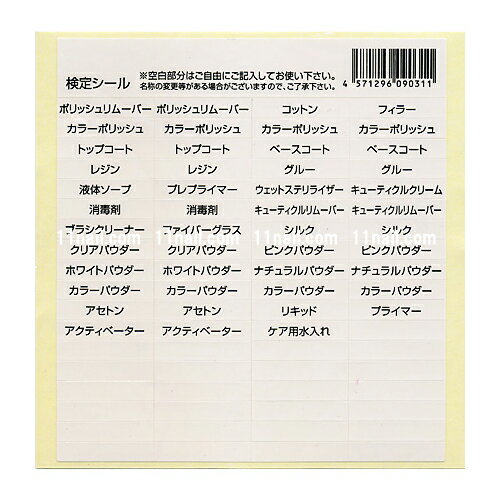 検定シール
※空白部分はご自由にご記入してお使い下さい。
名称の変更等がある場合がございますので、ご了承下さい。
4 571296 090311
ポリッシュリムーバー ポリッシュリムーバー コットン フィラー
カラーポリッシュ カラーポリッシュ カラーポリッシュ カラーポリッシュ
トップコート トップコート ベースコート ベースコート
レジン レジン グルー グルー
液体ソープ プレプライマー ウェットステリライザー キューティクルクリーム
消毒剤 消毒剤 キューティクルリムーバー キューティクルリムーバー
ブラシクリーナー ファイバーグラス シルク シルク
11nail.com 11nail.com 11nail.com 11nail.com
クリアパウダー クリアパウダー ピンクパウダー ピンクパウダー
ホワイトパウダー ホワイトパウダー ナチュラルパウダー ナチュラルパウダー
カラーパウダー カラーパウダー カラーパウダー カラーパウダー
アセトン アセトン リキッド プライマー
アクティベーター アクティベーター ケア用水入れ